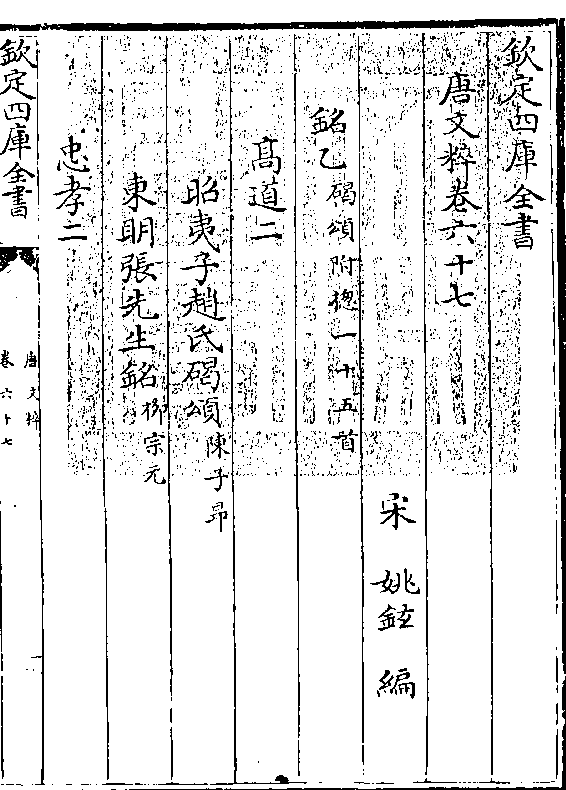 欽定四庫全書
唐文粹卷六十七
宋 姚鉉 編
銘乙碣頌附揔一十五首
高道二
昭夷子趙氏碣頌陳子昂
東明張先生銘柳宗元
忠孝二
欽定四庫全書
唐文粹
卷六十七
一